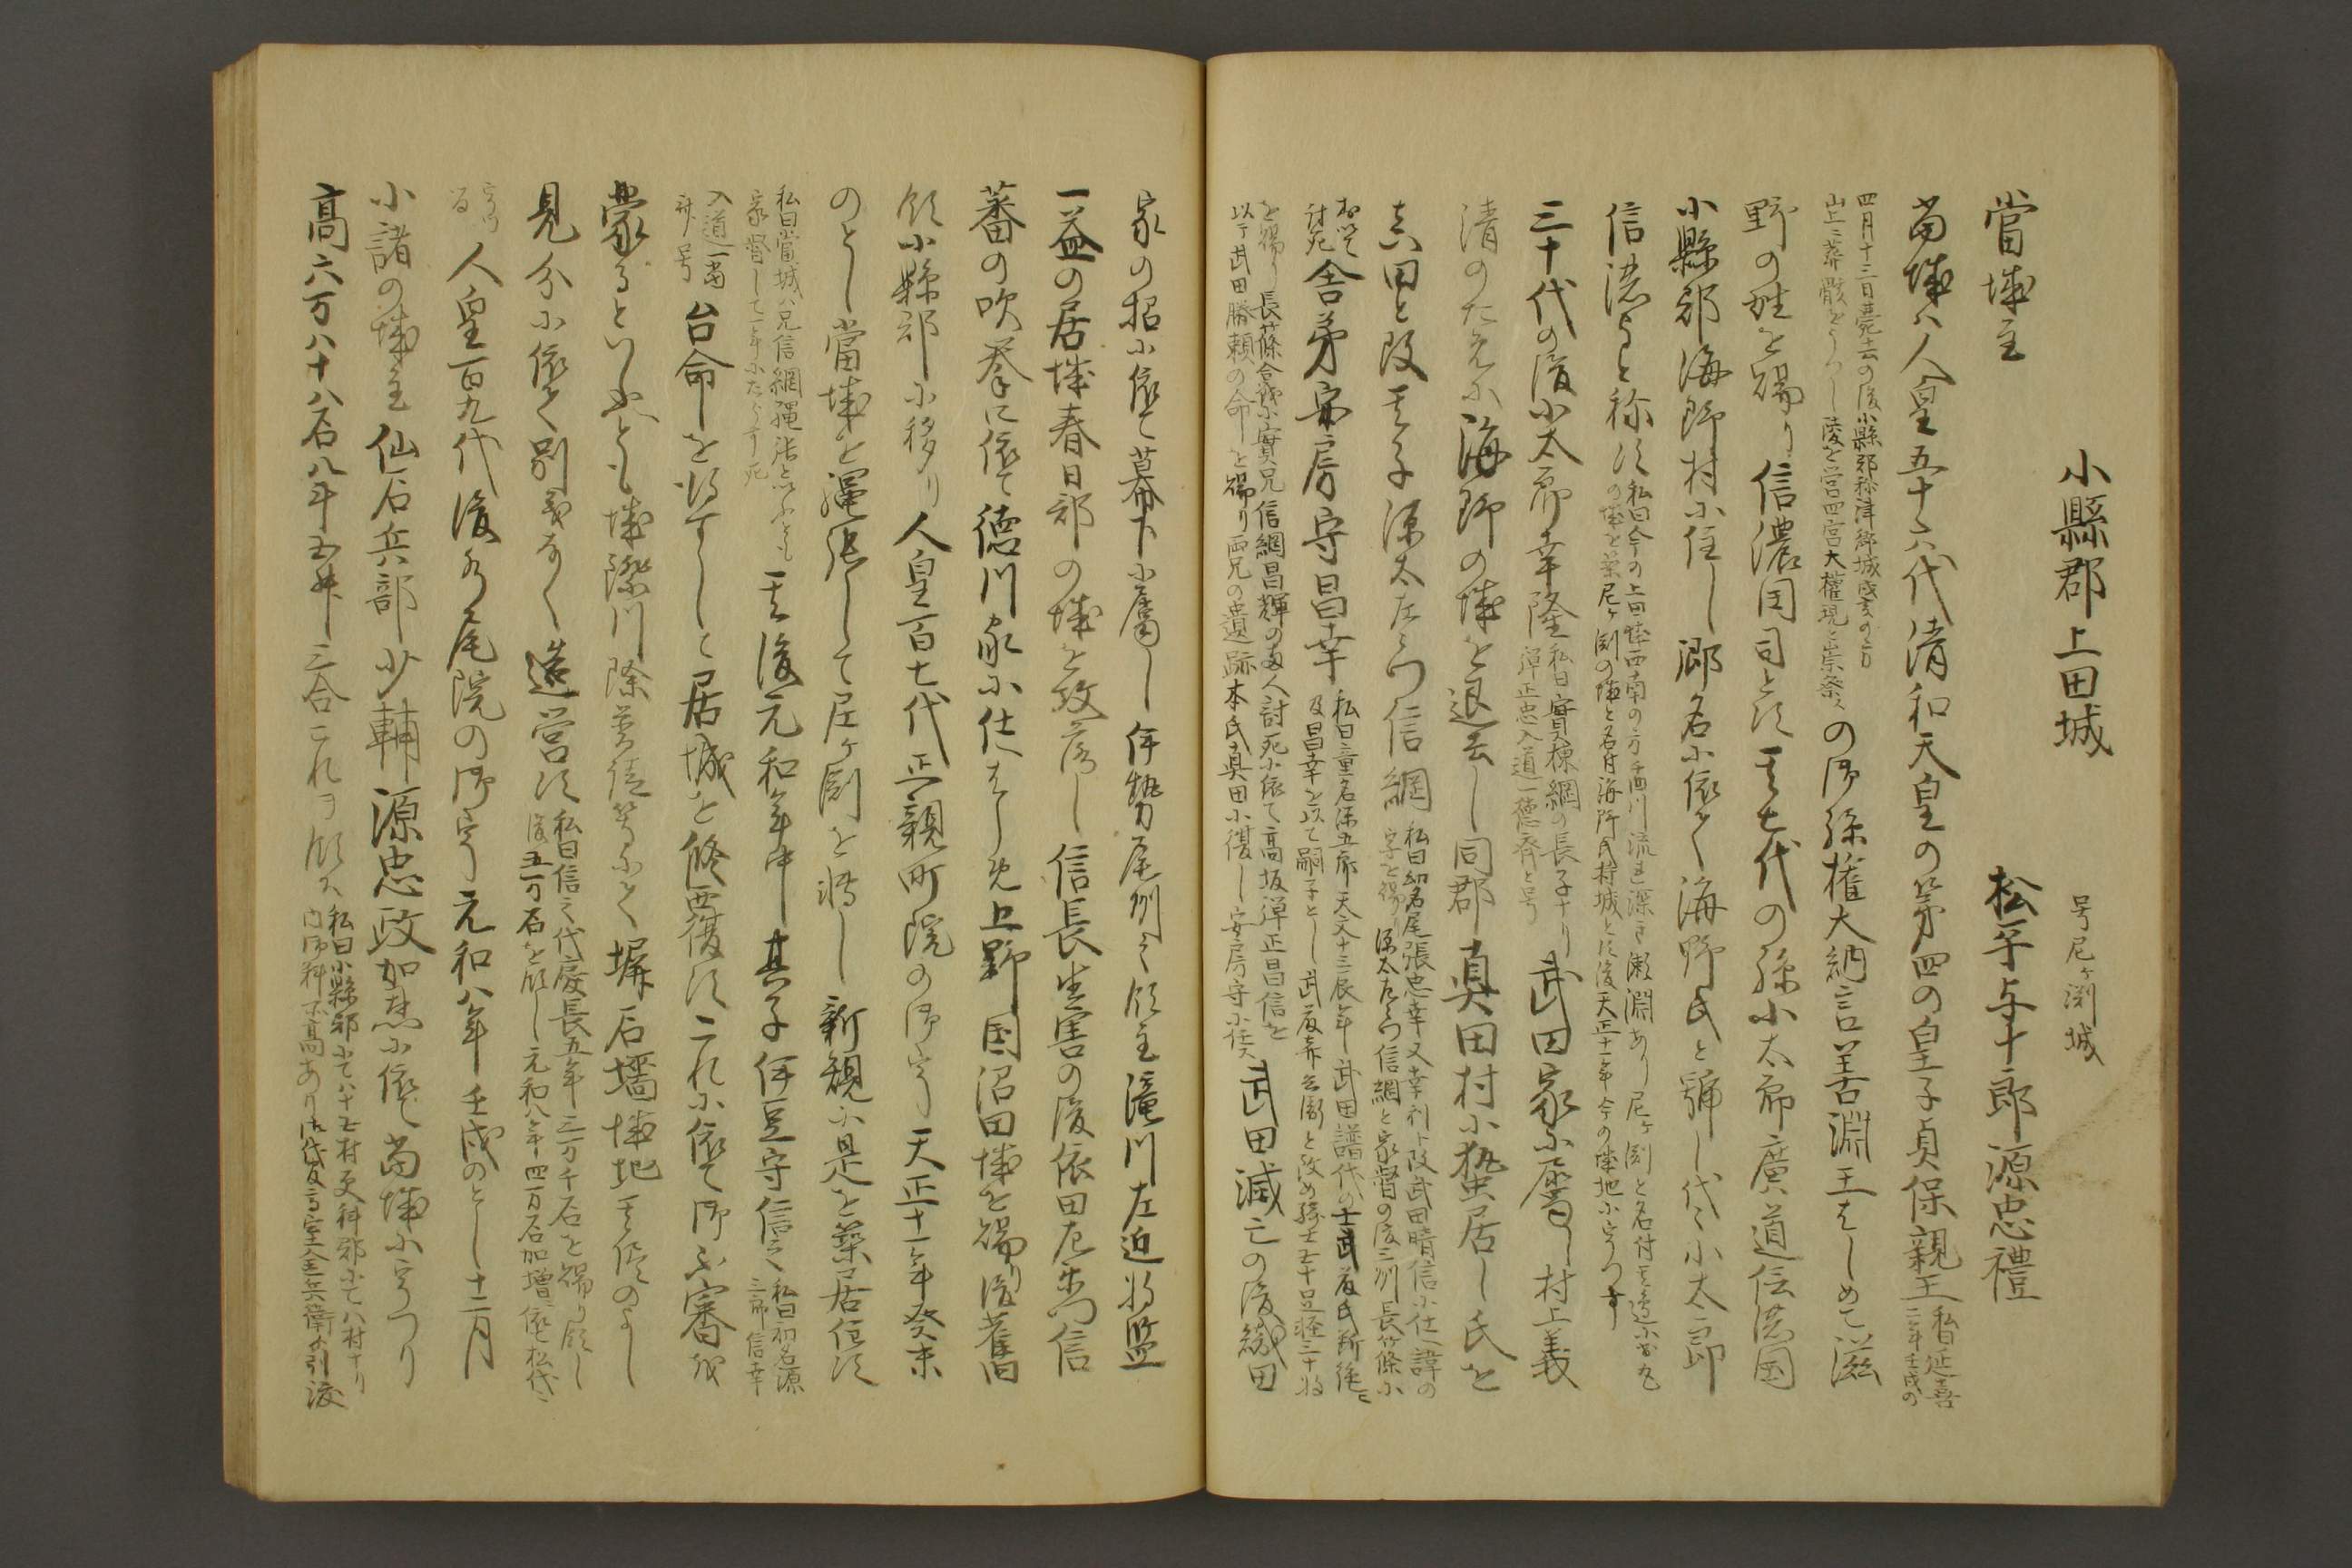 小縣郡上田城
号尼ヶ渕城
當城主
松平与十郎源忠禮
當城ハ人皇五十六代清和天皇の第四の皇子貞保親王
私曰延喜
二年壬戌の
四月十三日薨去の後小縣郡祢津郷城
山上ニ葬骸をうつし陵を営四宮大權現と崇祭ス
の御孫權大納言善淵王をしめて滋
野の姓を賜り信濃国司とす其七代の孫小太郎廣道信濃国
小縣郡海野村に住し郷名に依て海野氏と号し代々小太郎
信濃守と称す
私曰今の上田城西南の方千曲川流レ深き淵あり尼ヶ渕と名付其邊に
の城を築尼ヶ渕の城と名付海野氏持城とす後天正十一年今の城地にうつす
三十代の後小太郎幸隆
私曰實棟綱の長子ナリ
弾正忠入道一徳斎と号
武田家に属し村上義
清のために海野の城を退去し同郡真田村に蟄居し氏を
真田と改其子源太左衛門信綱
私曰幼名尾張忠幸又幸利ト改武田晴信に仕諱の
字を賜り源太左衛門信綱と家督の後三州長篠に
おゐて
討死
舎弟安房守昌幸
私曰童名源五郎天文十三辰年武田譜代の士武藤氏断絶ニ
及昌幸を以て嗣子とし武藤喜兵衛と改め騎士五十足軽三十
を賜り長篠合戦に實兄信綱昌輝の両人討死に依て高坂弾正昌信を
以テ武田勝頼の命を賜り両兄の遺跡本氏真田に復し安房守に任ス
武田滅亡の後織田
家の招に依て幕下に属し伊勢尾州之領主滝川左近将監
一益の居城春日部の城を攻落し信長生害の後依田右衛門信
蕃の吹挙に依て徳川家に仕へ上野国沼田城を賜り後舊
領小縣郡に移り人皇百七代正親町院の御宇天正十一年癸未
のとし當城を縄張して尼ヶ渕を将し新規に是を築居住す
私曰當城ハ兄信綱縄張といふとも
家督して一年にたらす死
其後元和年中其子伊豆守信之
私曰初名源
三郎信幸
入道一當
斎ト号
台命を蒙りし居城を修覆すこれに依て御不審を
蒙るといへとも城際川除普請等にて塀石墻城地其侭のよし
見分に依て別義なく造営す
私曰信之代慶長五年三万千石を賜り領し
後五万石を領し元和八年四万石加増依て松代ニ
うつ
る
人皇百九代後水尾院の御宇元和八年壬戌のとし十二月
小諸の城主仙石兵部少輔源忠政加恩に依て當城にうつり
高六万八十八石八斗五升三合これヲ領ス
私曰小縣郡にて八十五村更科郡にて八村ナリ
内御料所高あり御代官高室金兵衛ゟ引渡